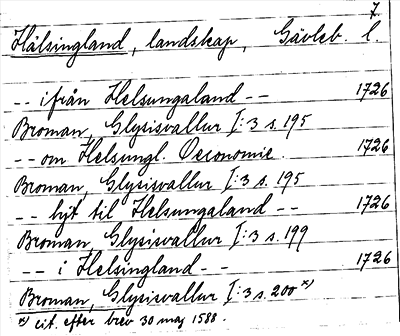 7.
Hälsingland, landskap, Gävleb. l.
-- ifrån Helsungaland -- 1726
Broman, Glysisvallur I:3 s. 195
-- om Helsungl. Oeconomie. 1726
Broman, Glysisvallur I:3 s. 195
-- hjt til Helsungaland -- 1726
Broman, Glysisvallur I:3 s. 199
-- i Helsingland -- 1726
Broman, Glysisvallur I:3 s. 200 x)
x) cit. efter brev 30 maj 1588.